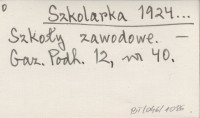 Szkolarka 1924...
Szkoły zawodowe. —
Gaz. Podh. 12, nr 40.